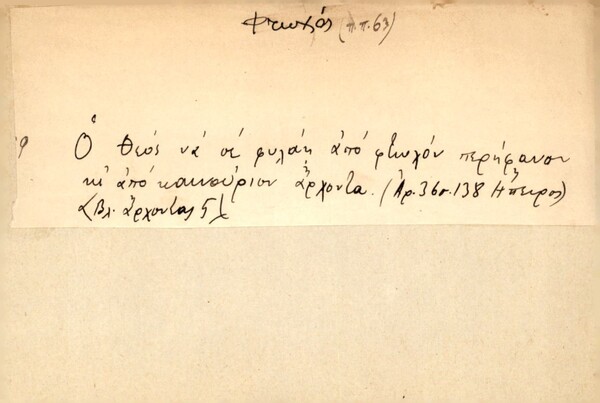 Φτωχός (π.π.63)
Ὁ Θεός νά σέ φυλάῃ ἀπό φτωχόν περήφανον
κι ἀπό καινούριον ἄρχοντα. (Ἀρ.36σ.138 Ἤπειρος)
(Βλ. ἄρχοντας 5)